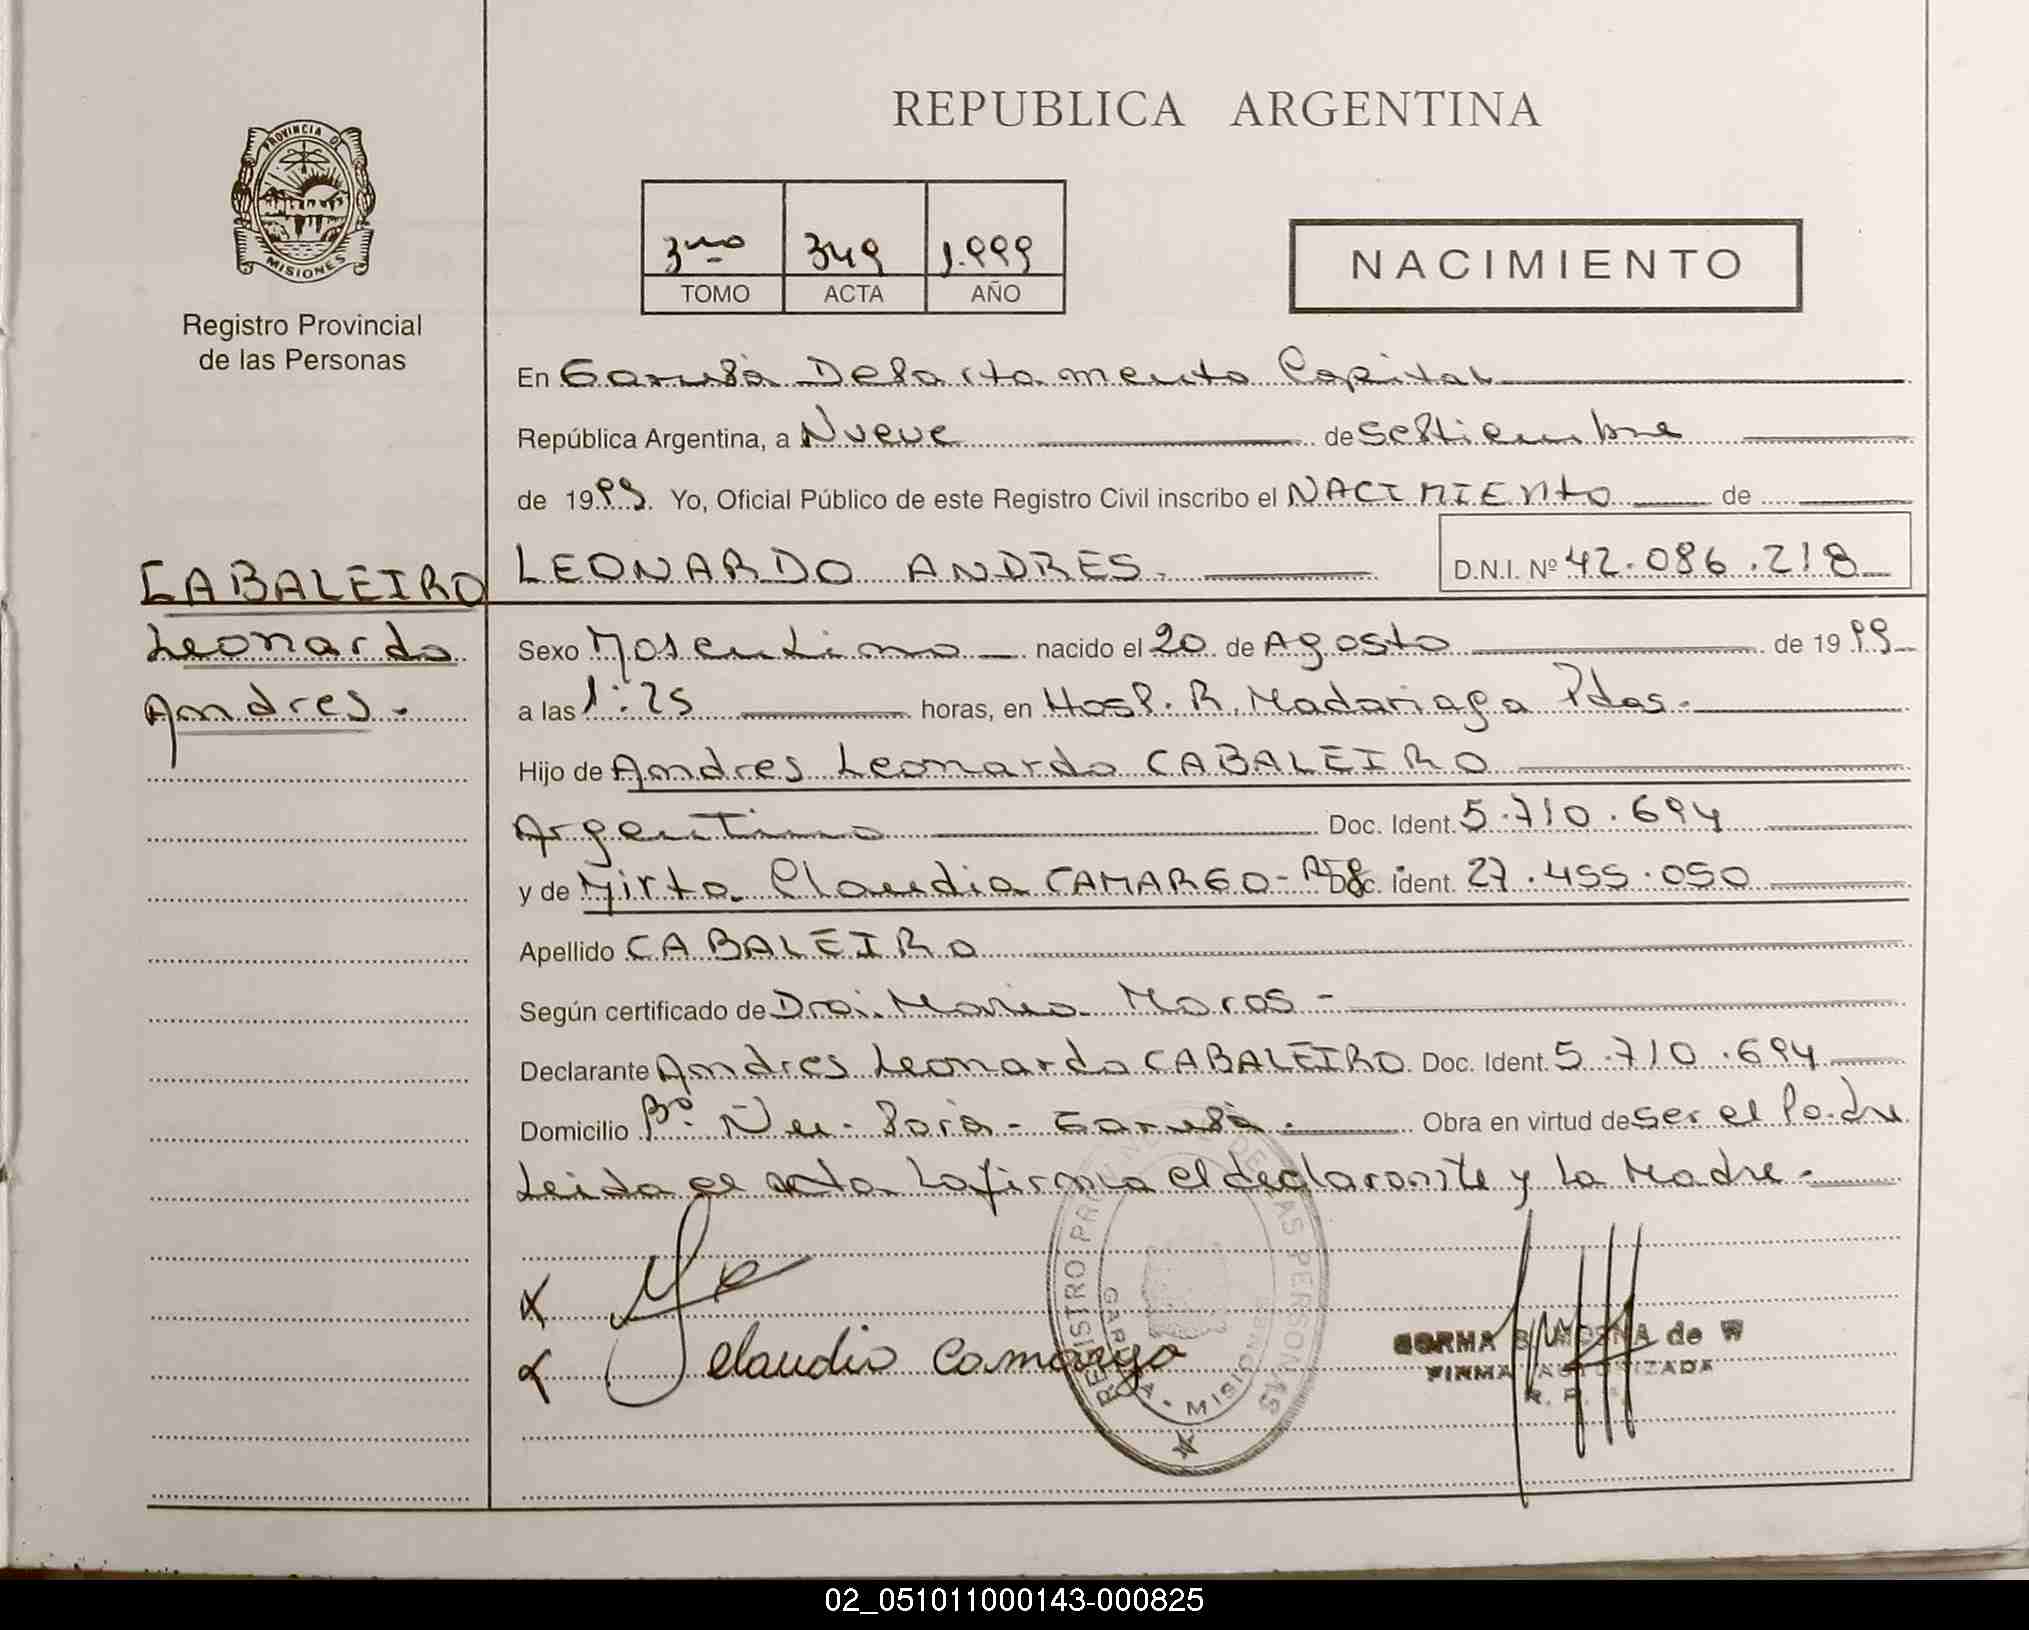 REPUBLICA ARGENTINA
PROVINCIA DE
MISIONES
Registro Provincial
de las Personas
3ro 349 1.999
TOMO ACTA AÑO
NACIMIENTO
En Garupá Departamento Capital
República Argentina, a Nueve de Septiembre
de 1999. Yo, Oficial Público de este Registro Civil inscribo el NACIMIENTO de
LEONARDO ANDRES. D.N.I. Nº 42.086.218
CABALEIRO
Leonardo
Andres.
Sexo Masculino nacido el 20 de Agosto de 1999
a las 1:25 horas, en Hosp. R. Madariaga Pdas.
Hijo de Andres Leonardo CABALEIRO
Argentino Doc. Ident. 5.710.694
y de Mirta Claudia CAMARGO - Arg. Doc. Ident. 27.455.050
Apellido CABALEIRO
Según certificado de Dra. Maros -
Declarante Andres Leonardo CABALEIRO. Doc. Ident. 5.710.694
Domicilio Bº. Ñu - Porá - Garupá. Obra en virtud de ser el Padre
Leida el acta La firma el declarante y La Madre.
x
x Claudia Camargo
REGISTRO DE LAS PERSONAS
GARUPA - MISIONES
de W
FIRMA AUTORIZADA
R. P.
02_051011000143-000825